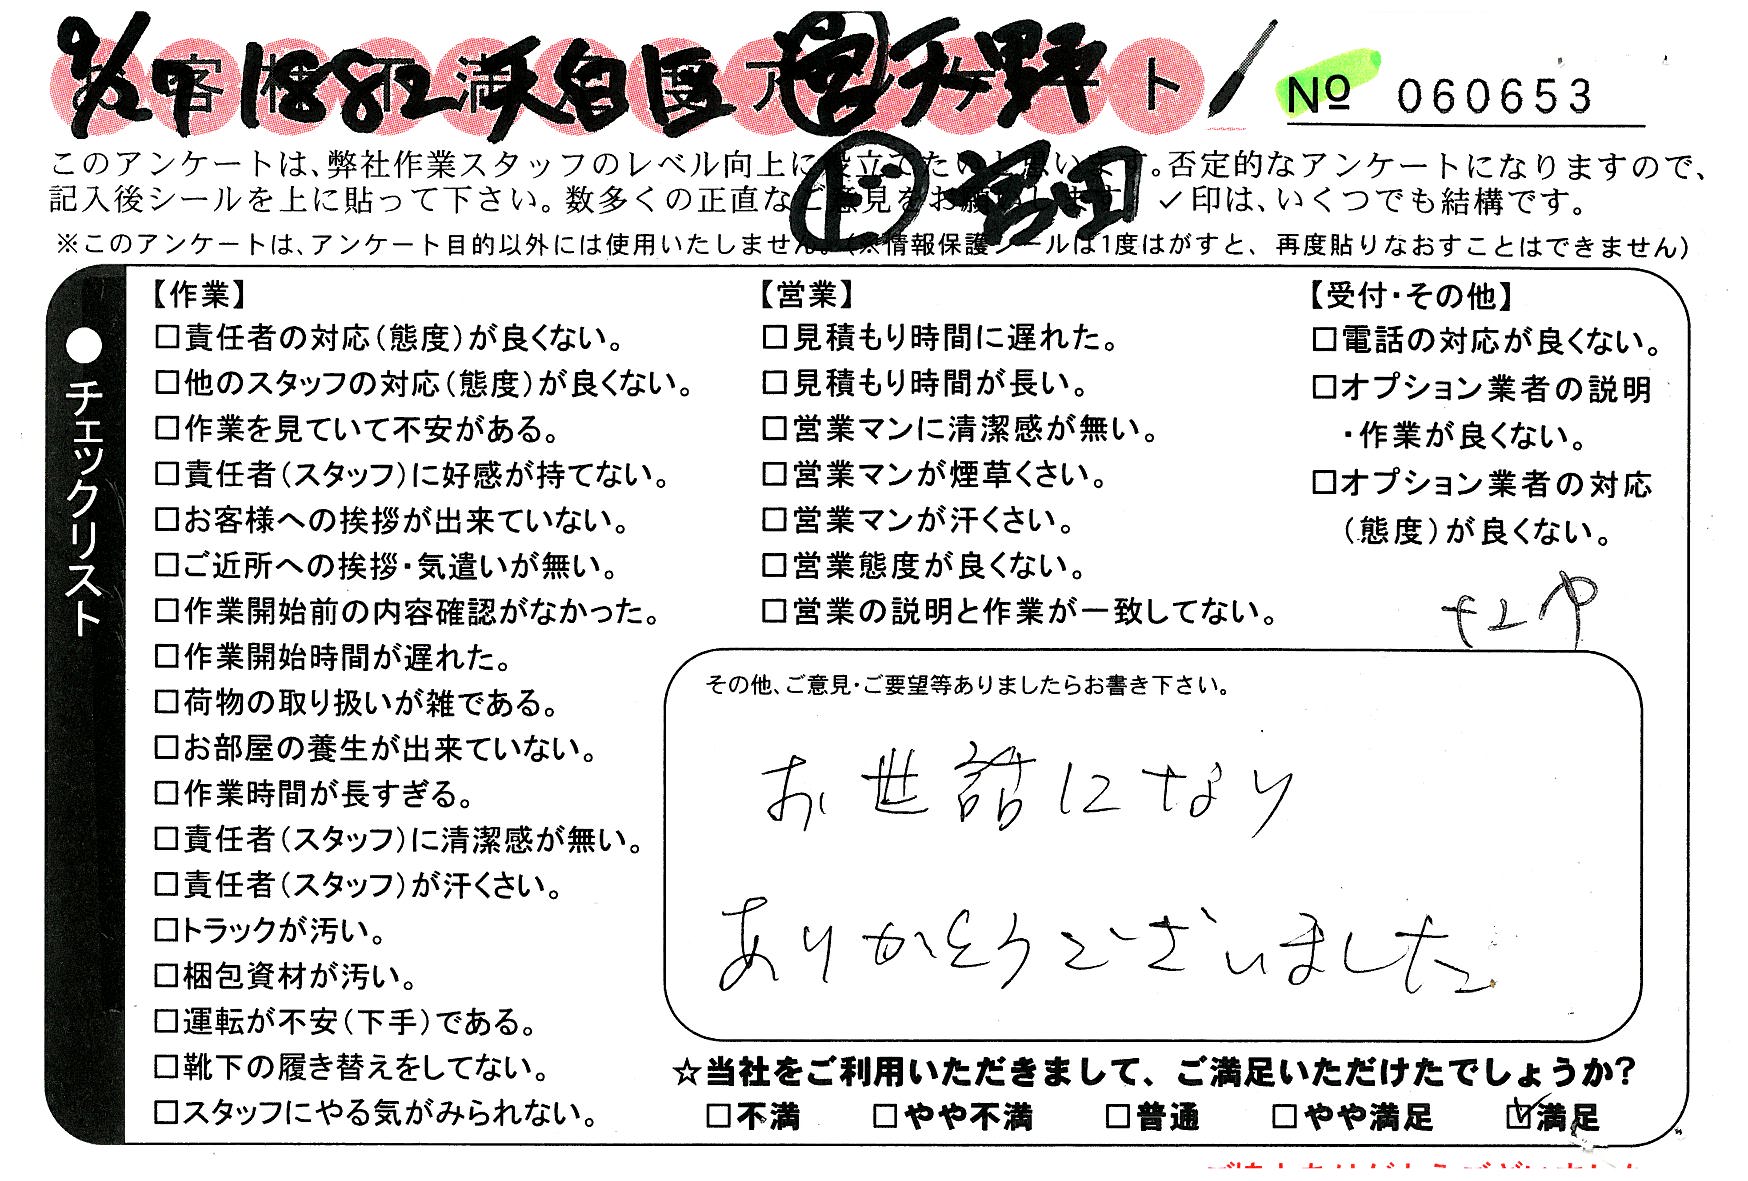 9/27 1882 天白区 営 天野
お客様不満足度アンケート
No 060653
ド 宮田
このアンケートは、弊社作業スタッフのレベル向上に役立てたいと思います。否定的なアンケートになりますので、
記入後シールを上に貼って下さい。数多くの正直なご意見をお願いします。✓印は、いくつでも結構です。
※このアンケートは、アンケート目的以外には使用いたしません。(※情報保護シールは1度はがすと、再度貼りなおすことはできません)
●チェックリスト
【作業】
□責任者の対応(態度)が良くない。
□他のスタッフの対応(態度)が良くない。
□作業を見ていて不安がある。
□責任者(スタッフ)に好感が持てない。
□お客様への挨拶が出来ていない。
□ご近所への挨拶・気遣いが無い。
□作業開始前の内容確認がなかった。
□作業開始時間が遅れた。
□荷物の取り扱いが雑である。
□お部屋の養生が出来ていない。
□作業時間が長すぎる。
□責任者(スタッフ)に清潔感が無い。
□責任者(スタッフ)が汗くさい。
□トラックが汚い。
□梱包資材が汚い。
□運転が不安(下手)である。
□靴下の履き替えをしてない。
□スタッフにやる気がみられない。
【営業】
□見積もり時間に遅れた。
□見積もり時間が長い。
□営業マンに清潔感が無い。
□営業マンが煙草くさい。
□営業マンが汗くさい。
□営業態度が良くない。
□営業の説明と作業が一致してない。
【受付・その他】
□電話の対応が良くない。
□オプション業者の説明
・作業が良くない。
□オプション業者の対応
(態度)が良くない。
その他、ご意見・ご要望等ありましたらお書き下さい。
お世話になり
ありがとうございました
☆当社をご利用いただきまして、ご満足いただけたでしょうか?
□不満 □やや不満 □普通 □やや満足 ☑満足